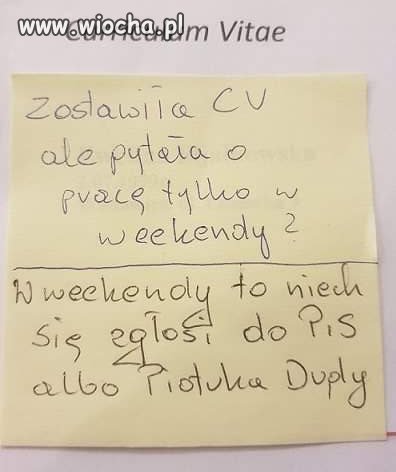 www.wiocha.pl
Curriculum Vitae
Zostawiła CV
ale pytała o
pracę tylko w
weekendy?
W weekendy to niech
się zgłosi do PiS
albo Piotuka Duply